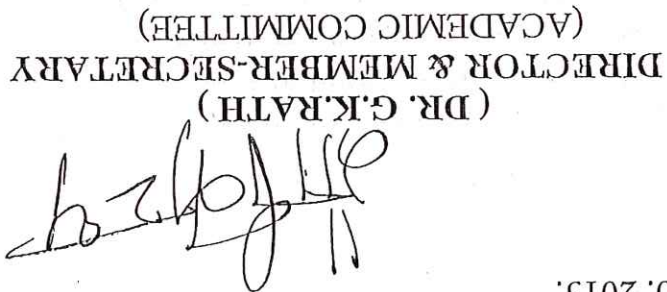 . 2015.
( DR. G.K.RATH )
DIRECTOR & MEMBER-SECRETARY
(ACADEMIC COMMITTEE)